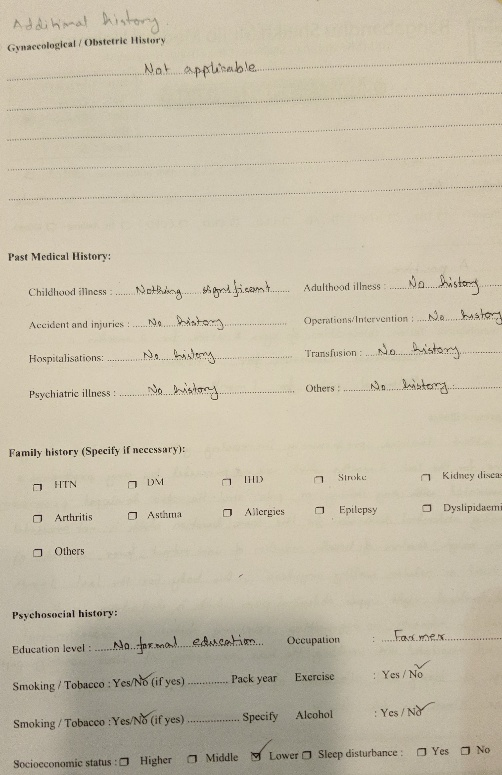 Additional history
Gynaecological / Obstetric History
Not applicable
Past Medical History:
Childhood illness : Nothing significant Adulthood illness : No history
Accident and injuries : No history Operations/Intervention : No history
Hospitalisations: No history Transfusion : No history
Psychiatric illness : No history Others : No history
Family history (Specify if necessary):
☐ HTN ☐ DM ☐ IHD ☐ Stroke ☐ Kidney diseas
☐ Arthritis ☐ Asthma ☐ Allergies ☐ Epilepsy ☐ Dyslipidaemi
☐ Others
Psychosocial history:
Education level : No formal education Occupation : Farmer
Smoking / Tobacco : Yes/No (if yes) .............. Pack year Exercise : Yes / No
Smoking / Tobacco : Yes/No (if yes) .................. Specify Alcohol : Yes / No
Socioeconomic status : ☐ Higher ☐ Middle ☑ Lower ☐ Sleep disturbance : ☐ Yes ☐ No